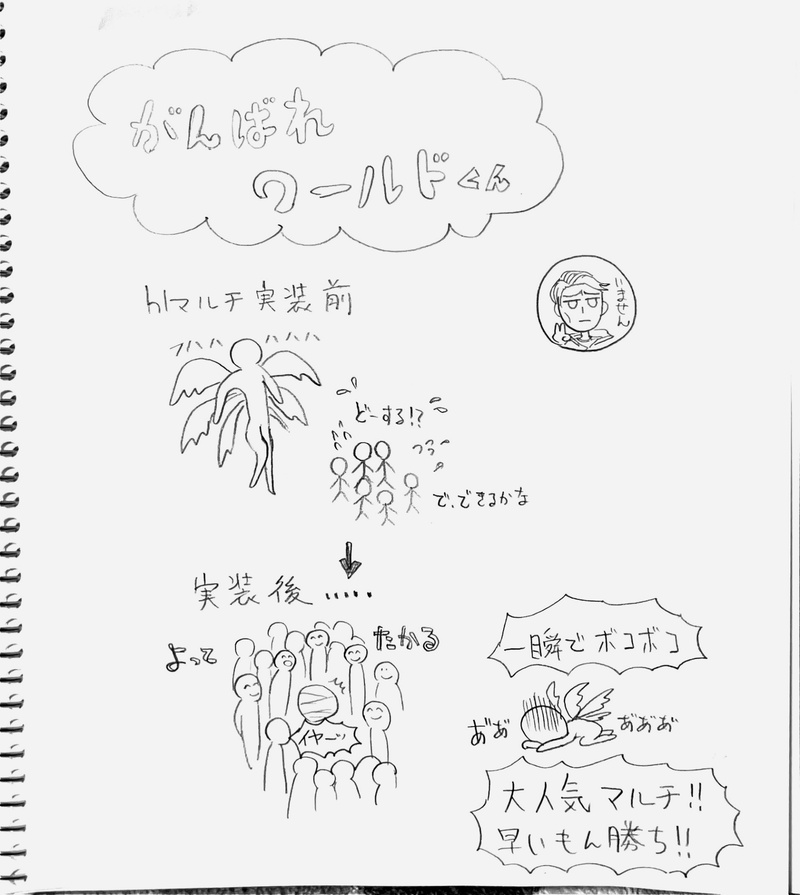 がんばれ
ワールドくん
hlマルチ実装前
いません
ハハハ
ハハハハ
どーする!?
で、できるかな
実装後……
よって
たかる
イヤーッ
一瞬でボコボコ
あ゛あ゛
あ゛あ゛あ゛
大人気マルチ!!
早いもん勝ち!!